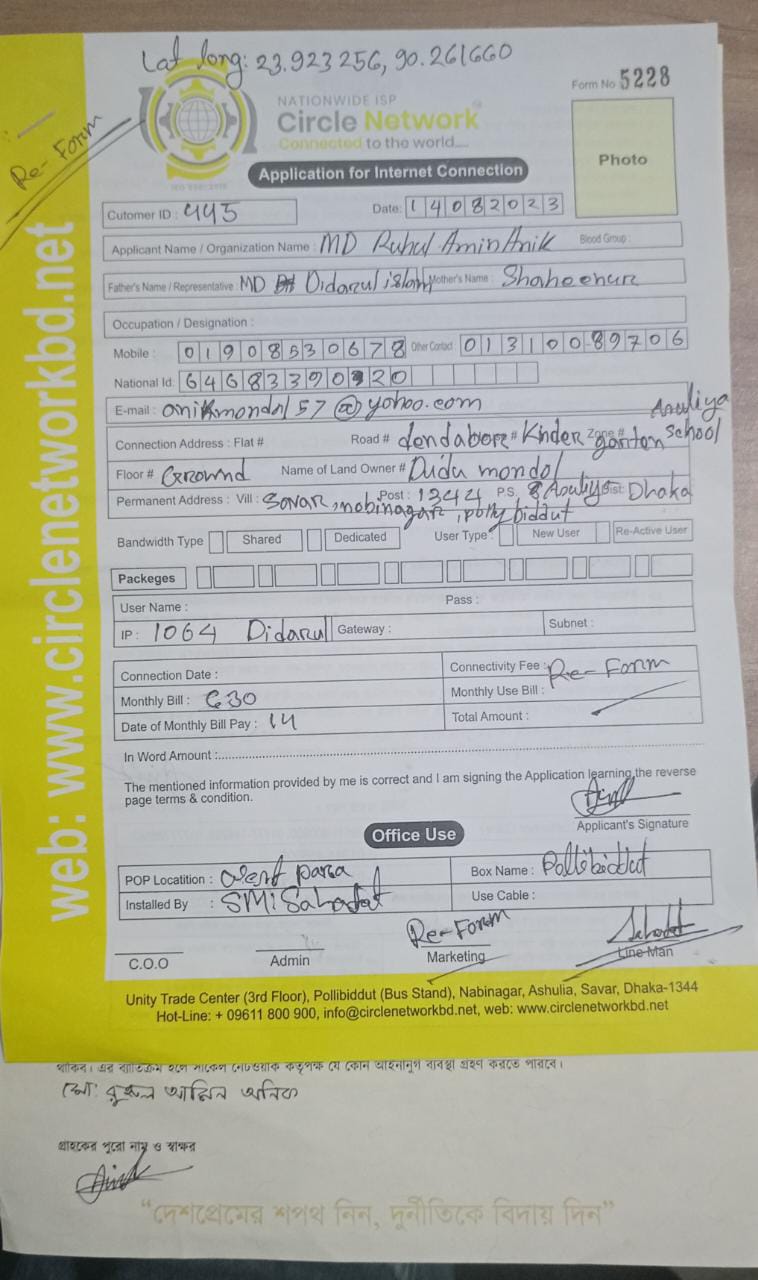 Lat long: 23.923256, 90.261660
Form No 5228
Re-Form
NATIONWIDE ISP
Circle Network
Connected to the world....
Photo
Application for Internet Connection
Cutomer ID : 445 Date: 14082023
Applicant Name / Organization Name : MD Ruhul Amin Anik Blood Group :
Father's Name / Representative : MD Didarul islam Mother's Name : Shaheenur
Occupation / Designation :
Mobile : 01908530678 Other Contact : 01310089706
National Id: 6468339020
E-mail : anikmondol57@yahoo.com
Connection Address : Flat # Road # dendabor # Kinder garton Zone # school Asuliya
Floor # Ground Name of Land Owner # Dudu mondol
Permanent Address : Vill : Savar, nobinagar, polly biddut Post : 1344 P.S. Asuliya Dist: Dhaka
Bandwidth Type Shared Dedicated User Type : New User Re-Active User
Packeges
User Name : Pass :
IP : 1064 Didarul Gateway : Subnet :
Connection Date : Connectivity Fee : Re-Form
Monthly Bill : 630 Monthly Use Bill :
Date of Monthly Bill Pay : 14 Total Amount :
In Word Amount :
The mentioned information provided by me is correct and I am signing the Application learning the reverse
page terms & condition.
Applicant's Signature
Office Use
POP Locatition : West para Box Name : Pollibiddut
Installed By : SMi Sahadat Use Cable :
Re-Form Sahadat
C.O.O Admin Marketing Line Man
Unity Trade Center (3rd Floor), Pollibiddut (Bus Stand), Nabinagar, Ashulia, Savar, Dhaka-1344
Hot-Line: + 09611 800 900, info@circlenetworkbd.net, web: www.circlenetworkbd.net
web: www.circlenetworkbd.net
থাকিব। এর ব্যতিক্রম হলে সার্কেল নেটওয়ার্ক কতৃপক্ষ যে কোন আইনানুগ ব্যবস্থা গ্রহণ করতে পারবে।
মো: রুহুল আমিন অনিক
গ্রাহকের পুরো নাম ও স্বাক্ষর
“দেশপ্রেমের শপথ নিন, দুর্নীতিকে বিদায় দিন”